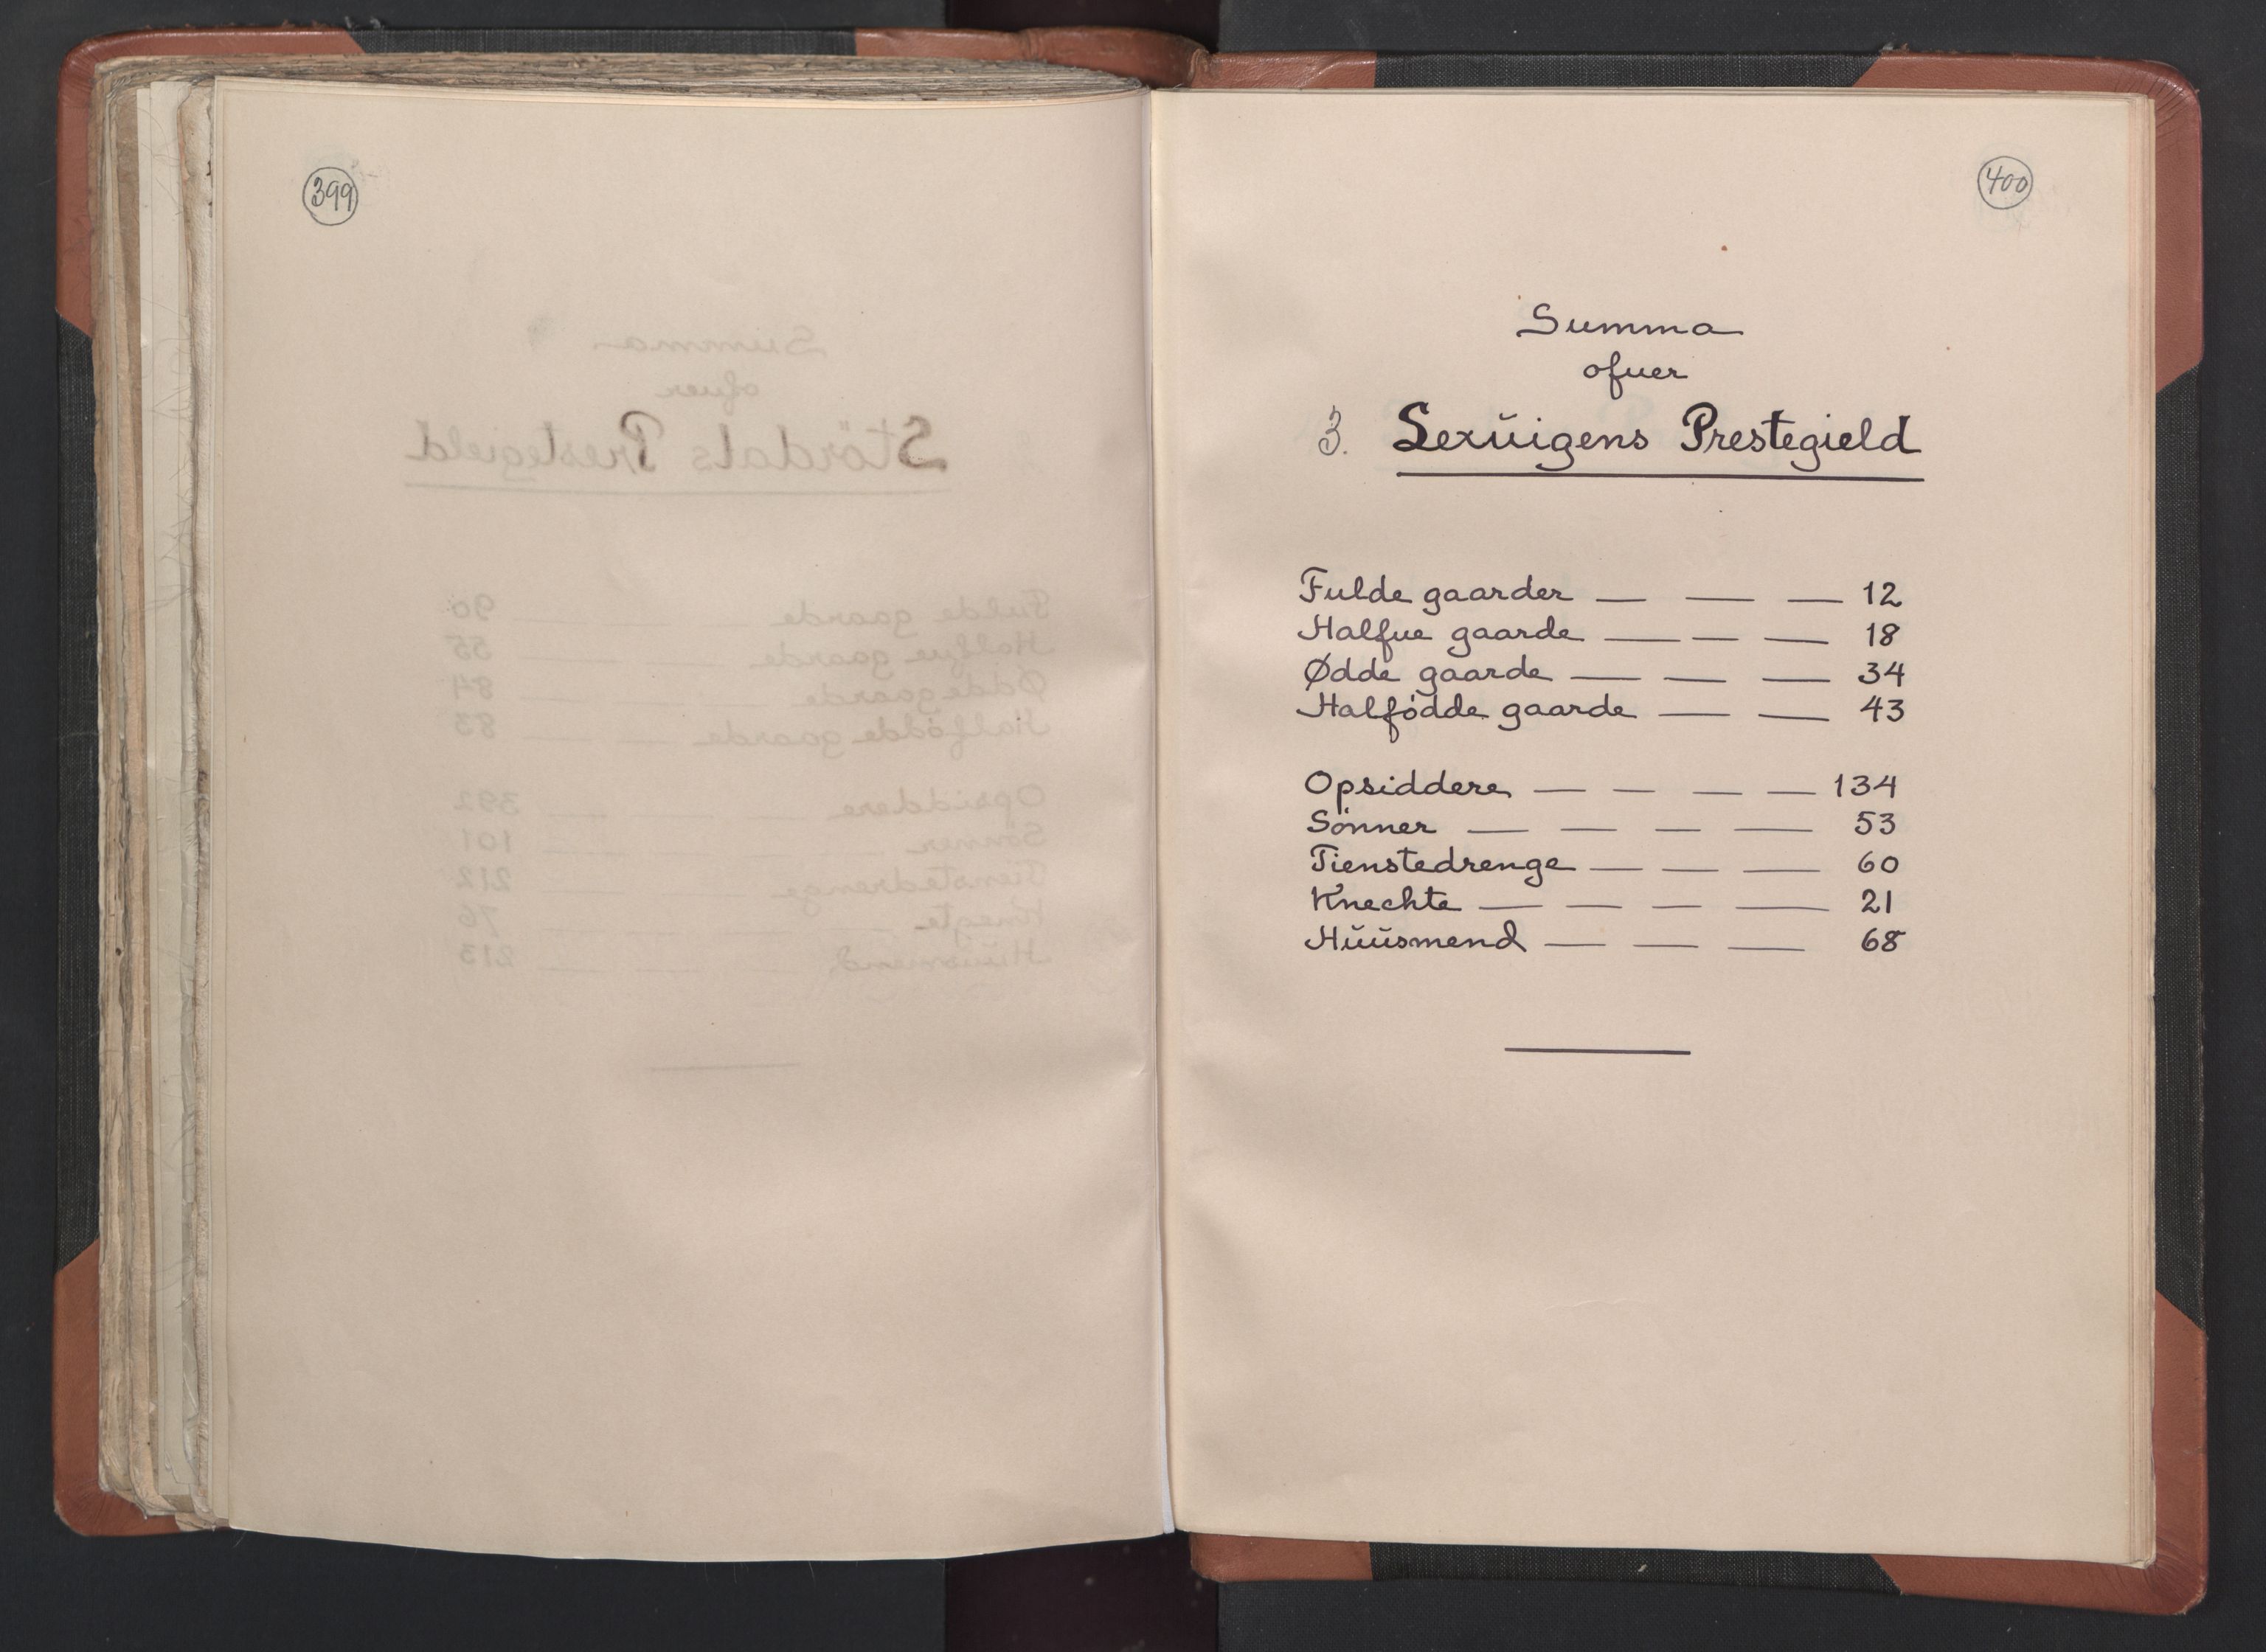 399
400
Summa
ofuer
3. Lexüigens Prestegield
Fulde gaarder — — — 12
Halfue gaarde — — — 18
Ødde gaarde — — — 34
Halfødde gaarde — — 43
Opsiddere — — — — 134
Sønner — — — — 53
Tienstedrenge — — — 60
Knechte — — — — 21
Hüüsmend — — — 68